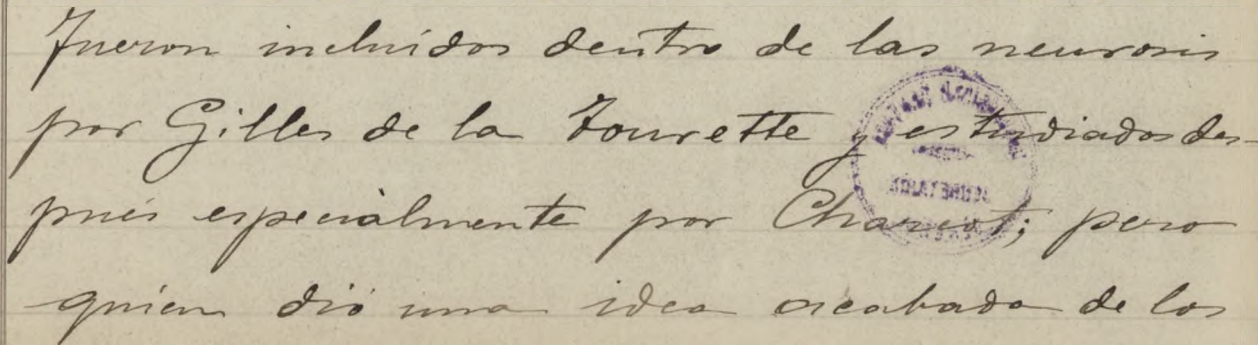 Fueron incluídos dentro de las neurosis
por Gilles de la Tourette y estudiados des-
pués especialmente por Charcot; pero
quien dió una idea acabada de los